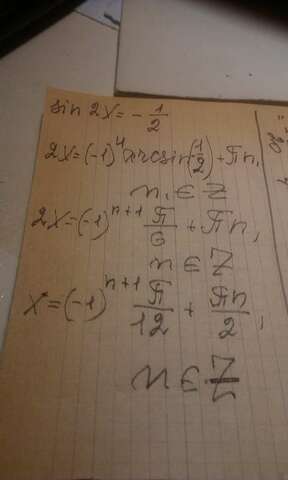 sin 2x = - 1/2
2x = (-1)^n arcsin(1/2) + Πn,
n, ∈ Z
2x = (-1)^{n+1} Π/6 + Πn,
n ∈ Z
x = (-1)^{n+1} Π/12 + Πn/2,
n ∈ Z